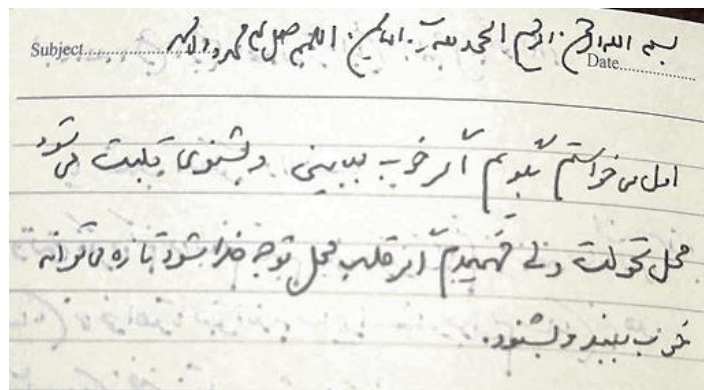 بسم الله الرحمن الرحیم الحمد لله رب العالمین اللهم صل علی محمد و آل محمد
Subject................ Date................
اول می خواستم بگویم اگر خوب ببینی و بشنوی قلبت می شود
محل تحولات ولی فهمیدم اگر قلب محل توجه خدا شود تازه می تواند
خوب ببیند و بشنود.